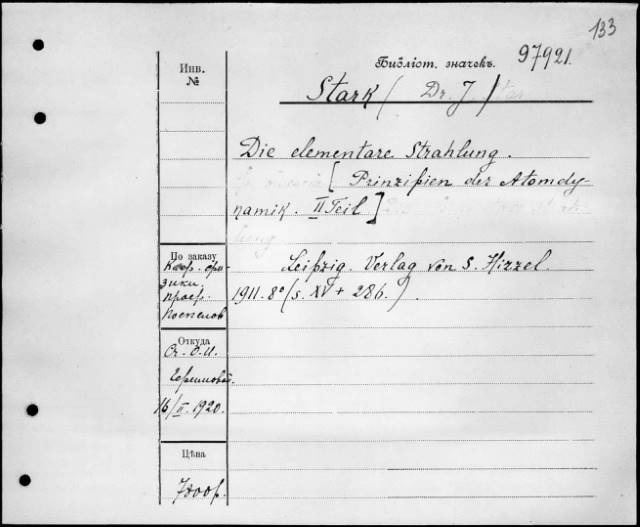 133
Инв.
№
Библіот. значекъ.
97921.
Stark ( Dr. J. )
Die elementare Strahlung.
[ Prinzipien der Atomdy-
namik. II Teil ]
По заказу
Каф. фи-
зики
проф.
Поспелов
Leipzig. Verlag von S. Hirzel.
1911. 8º ( S. XV + 286. ) .
Откуда
От О.И.
16/II. 1920.
Цѣна